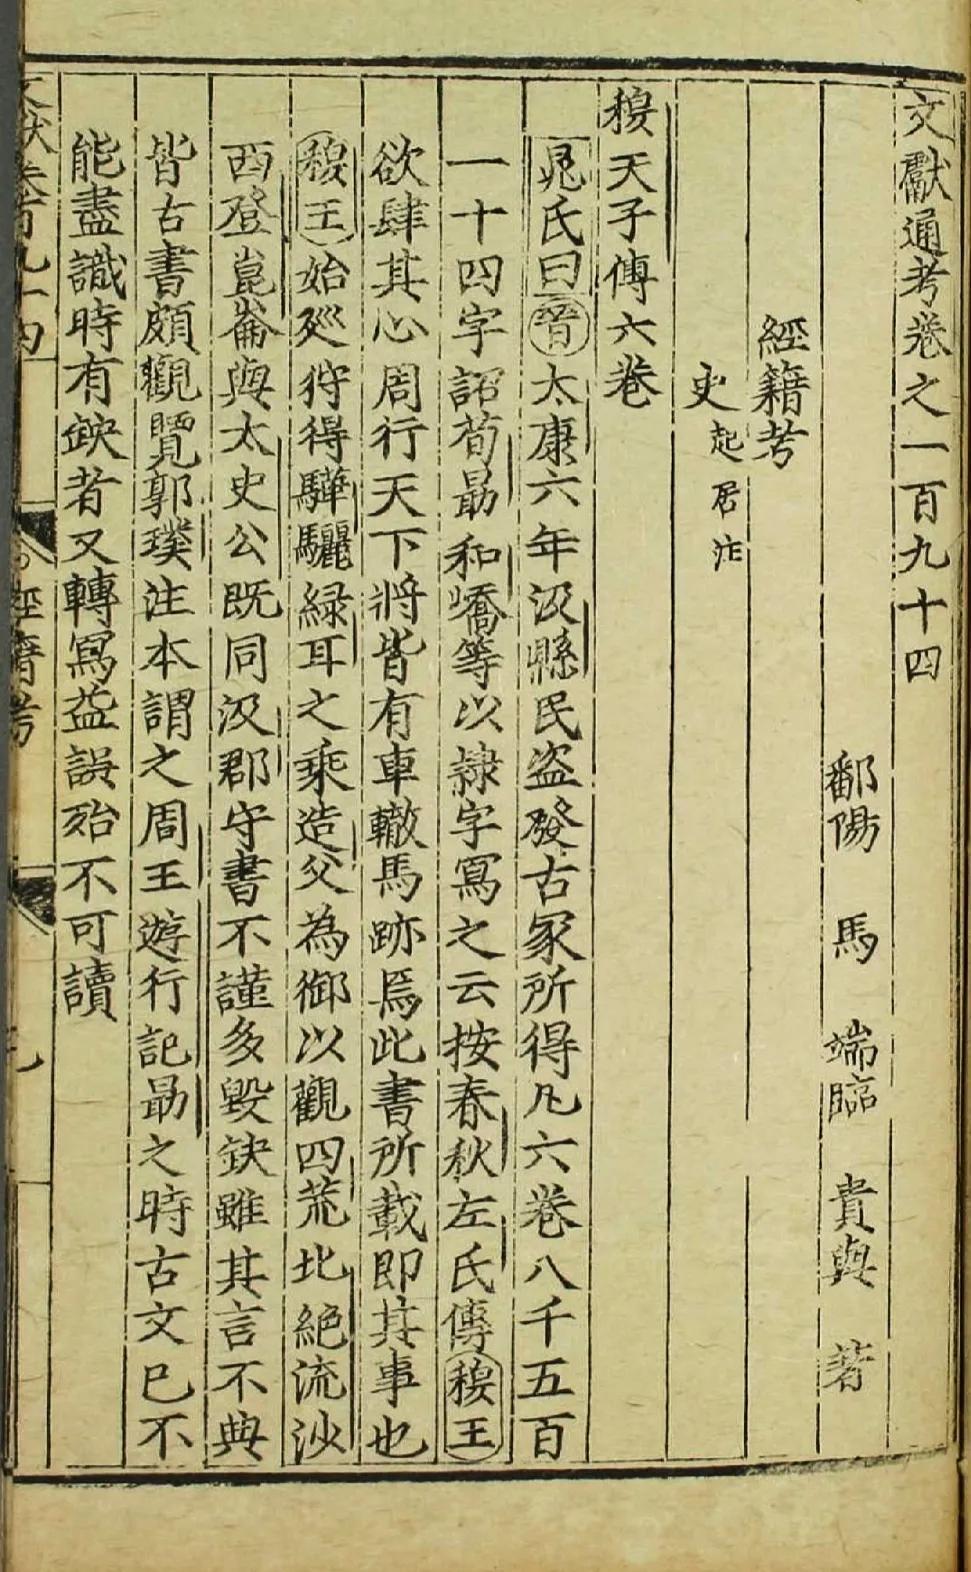 文獻通考卷之一百九十四
鄱陽 馬 端臨 貴與 著
經籍考
史起居注
穆天子傳六卷
晁氏曰晉太康六年汲縣民盜發古冢所得凡六卷八千五百
一十四字詔荀勗和嶠等以隷字寫之云按春秋左氏傳穆王
欲肆其心周行天下將皆有車轍馬跡焉此書所載即其事也
穆王始廵狩得驊騮綠耳之乘造父為御以觀四荒北絶流沙
西登崑崙與太史公既同汲郡守書不謹多毀鈌雖其言不典
皆古書頗觀覽郭璞注本謂之周王遊行記勗之時古文已不
能盡識時有鈌者又轉寫益誤殆不可讀